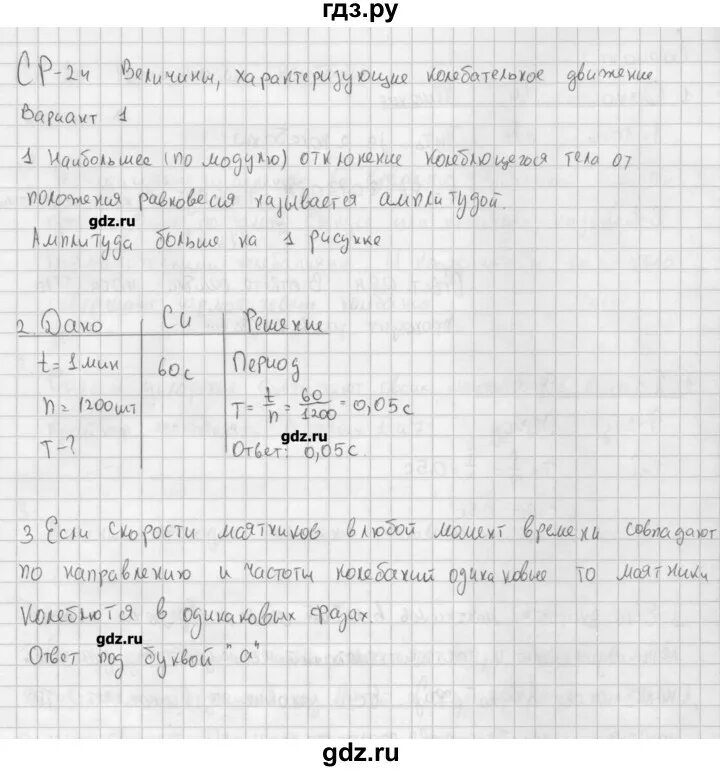 гдз.ру
СР-24 Величины, характеризующие колебательное движение
Вариант 1
1 Наибольшее (по модулю) отклонение колеблющегося тела от
положения равновесия называется амплитудой.
gdz.ru
Амплитуда больше на 1 рисунке
2 Дано | СИ | Решение
t = 1 мин | 60 с | Период
n = 1200 шт | T = t/n = 60/1200 = 0,05 с
gdz.ru
T - ? | Ответ: 0,05 с.
3 Если скорости маятников в любой момент времени совпадают
по направлению и частоты колебаний одинаковые то маятники
колеблются в одинаковых фазах.
gdz.ru
Ответ под буквой "а"
gdz.ru